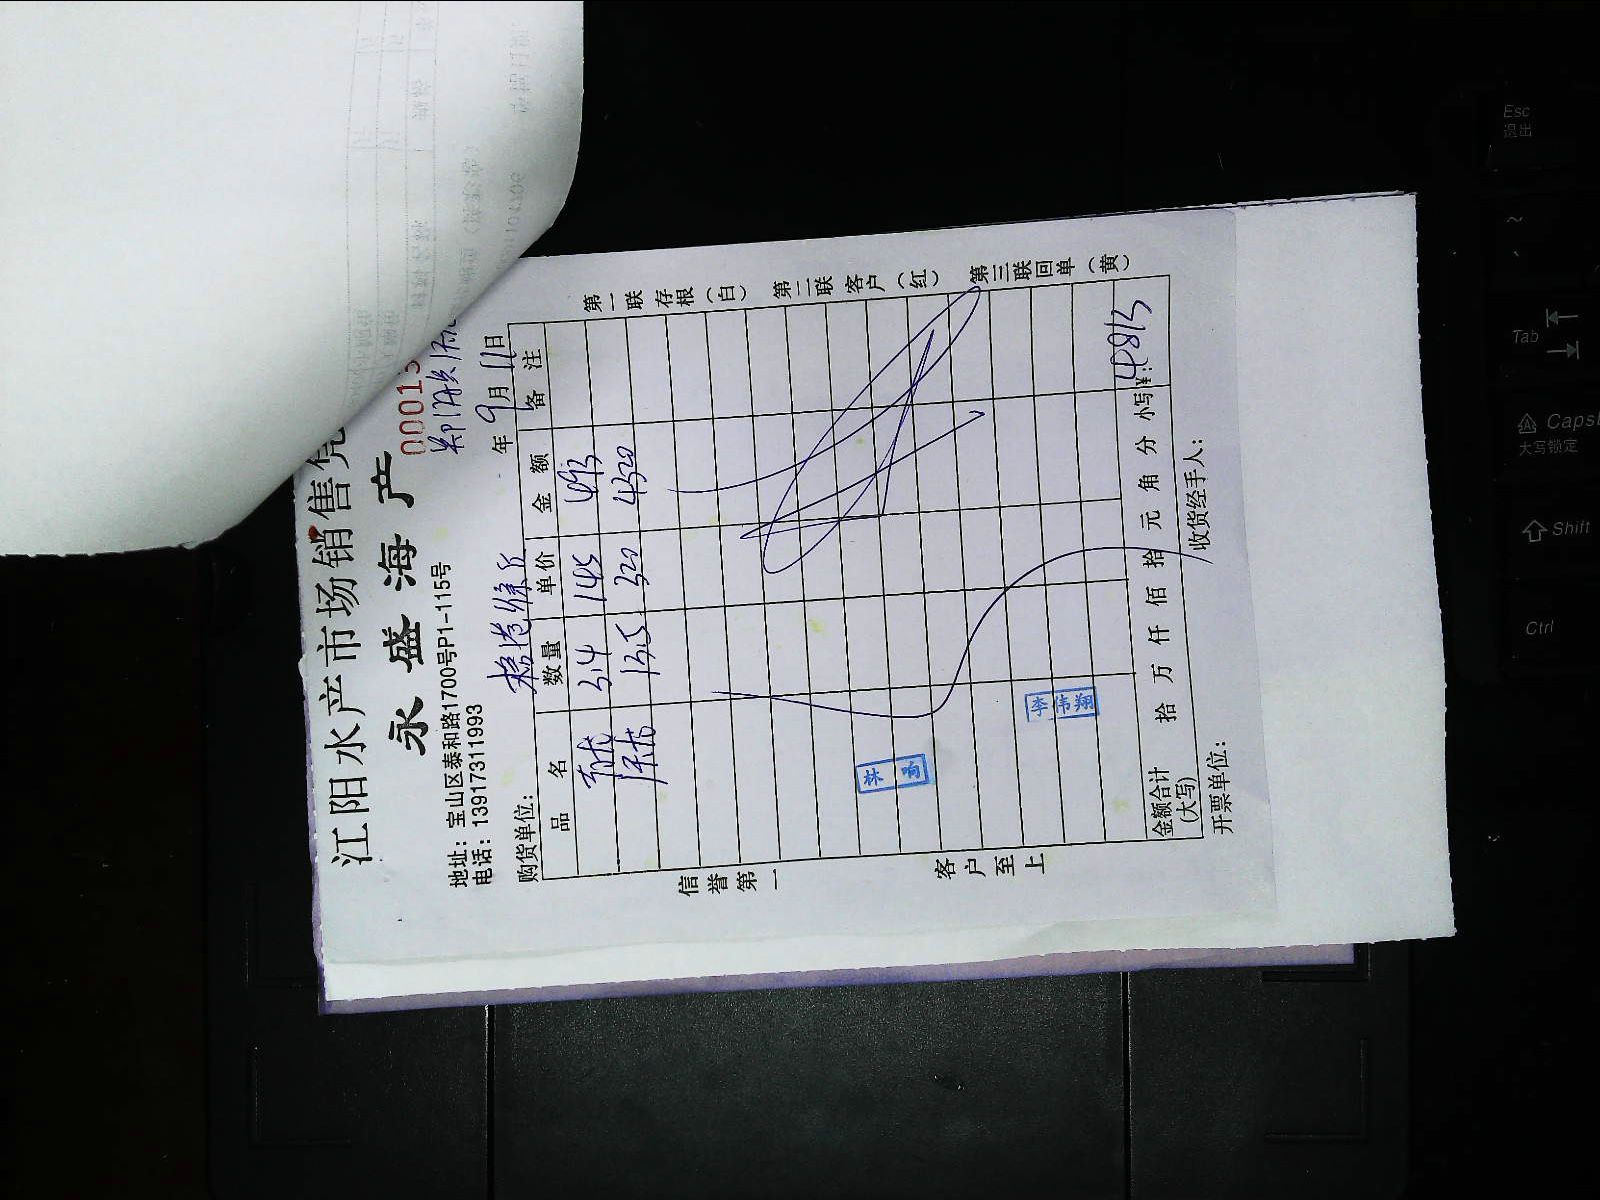 江阳水产市场销售凭
永盛海产
00015
地址：宝山区泰和路1700号P1-115号
电话：13917311993
购货单位：
年9月11日
品名 数量 单价 金额 备注
3.4 145 493
13.5 320 4320
林响
李伟翔
金额合计(大写) 拾 万 仟 佰 拾 元 角 分 小写¥：4813
开票单位： 收货经手人：
信誉第一 客户至上
第一联存根（白） 第二联客户（红） 第三联回单（黄）
Esc
退出
~
Tab
Caps
大写锁定
Shift
Ctrl